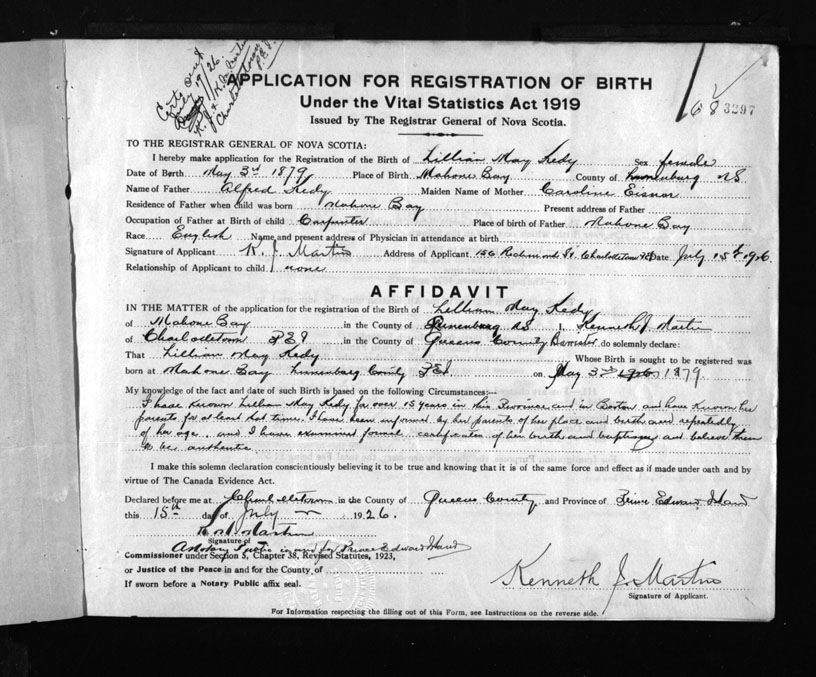 Certs sent
July 19/26.
K. J. & H. A. Martin
Charlottetown
P.E.I.
68 3297
APPLICATION FOR REGISTRATION OF BIRTH
Under the Vital Statistics Act 1919
Issued by The Registrar General of Nova Scotia.
TO THE REGISTRAR GENERAL OF NOVA SCOTIA:
I hereby make application for the Registration of the Birth of Lillian May Kedy Sex female
Date of Birth May 3rd 1879 Place of Birth Mahone Bay County of Lunenburg NS
Name of Father Alfred Kedy Maiden Name of Mother Caroline Eisnor
Residence of Father when child was born Mahone Bay Present address of Father
Occupation of Father at Birth of child Carpenter Place of birth of Father Mahone Bay
Race English Name and present address of Physician in attendance at birth
Signature of Applicant K. J. Martin Address of Applicant 156 Richmond St. Charlottetown PEI Date July 15th 1926.
Relationship of Applicant to child none
AFFIDAVIT
IN THE MATTER of the application for the registration of the Birth of Lillian May Kedy
of Mahone Bay in the County of Lunenburg NS I, Kenneth J. Martin
of Charlottetown P.E.I in the County of Queens County Barrister do solemnly declare:
That Lillian May Kedy Whose Birth is sought to be registered was
born at Mahone Bay Lunenburg County P.E.I on May 3rd 1879.
My knowledge of the fact and date of such Birth is based on the following Circumstances:—
I have known Lillian May Kedy for over 15 years in this Province and in Boston and have known her
parents for at least that time. I have been informed by her parents of her place and birth and repeatedly
of her age. and I have examined formal certificates of her birth and baptism and believe them
to be authentic
I make this solemn declaration conscientiously believing it to be true and knowing that it is of the same force and effect as if made under oath and by
virtue of The Canada Evidence Act.
Declared before me at Charlottetown in the County of Queens County and Province of Prince Edward Island
this 15th day of July 1926.
Martin
Signature of
A Notary Public in and for Prince Edward Island
Commissioner under Section 5, Chapter 38, Revised Statutes, 1923,
or Justice of the Peace in and for the County of
If sworn before a Notary Public affix seal.
Kenneth J. Martin
Signature of Applicant.
For Information respecting the filling out of this Form, see Instructions on the reverse side.